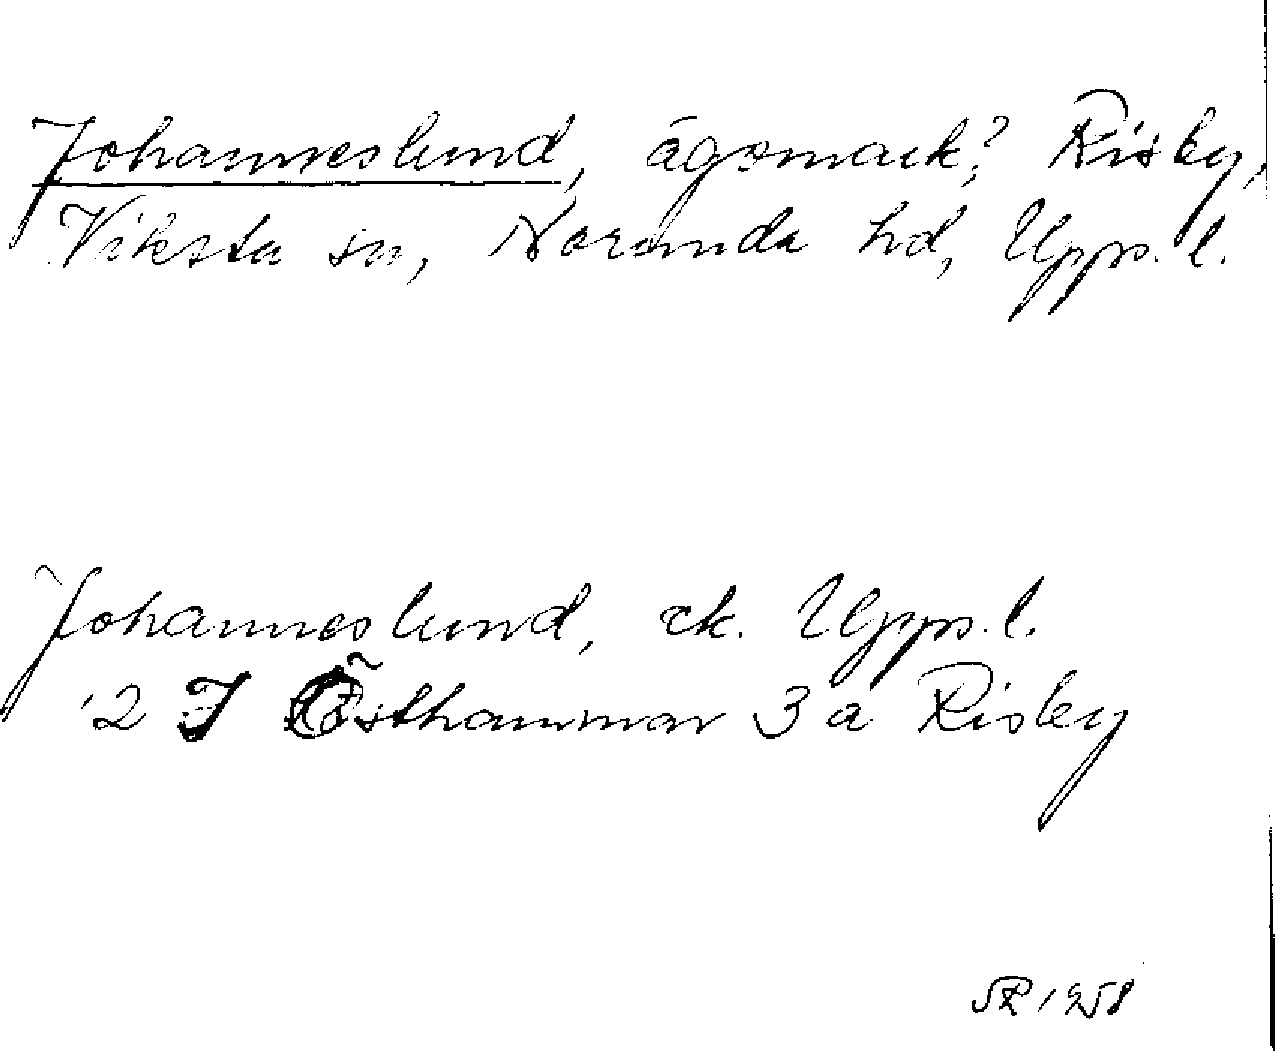 Johanneslund, ägomark? Risby,
Viksta sn, Norunda hd, Uppl.
Johanneslund, ek. Uppl.
12 J Östhammar 3 a Risby
1958